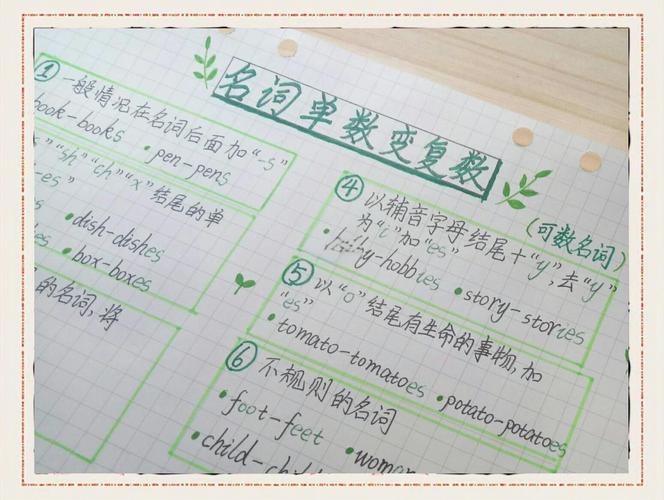 名词单数变复数
(可数名词)
① 一般情况在名词后面加“-s”
book-books •pen-pens
"sh" "ch" "x" 结尾的单
-es"
•dish-dishes
•box-boxes
的名词, 将
④ 以辅音字母结尾+"y",去"y"
为"i"加"es"
•hobby-hobbies •story-stories
⑤ 以"o"结尾有生命的事物,加
"es"
•tomato-tomatoes •potato-potatoes
⑥ 不规则的名词
•foot-feet
•child-child